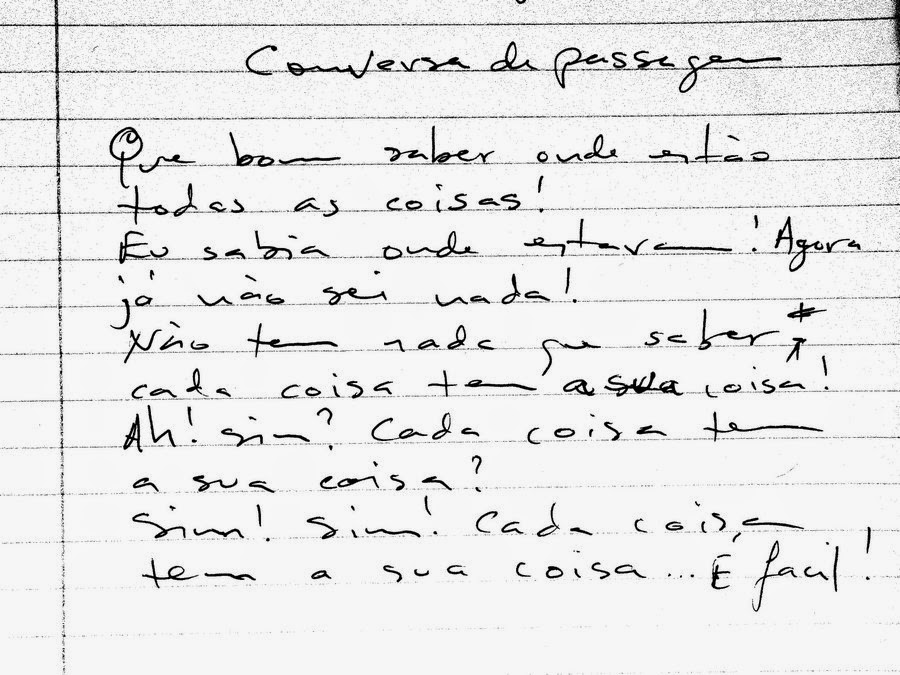 Conversa de passagem
Que bom saber onde estão
todas as coisas!
Eu sabia onde estavam! Agora
já não sei nada!
Não tem nada que saber *
cada coisa tem a sua coisa!
Ah! sim? Cada coisa tem
a sua coisa?
Sim! Sim! Cada coisa
tem a sua coisa... É facil!